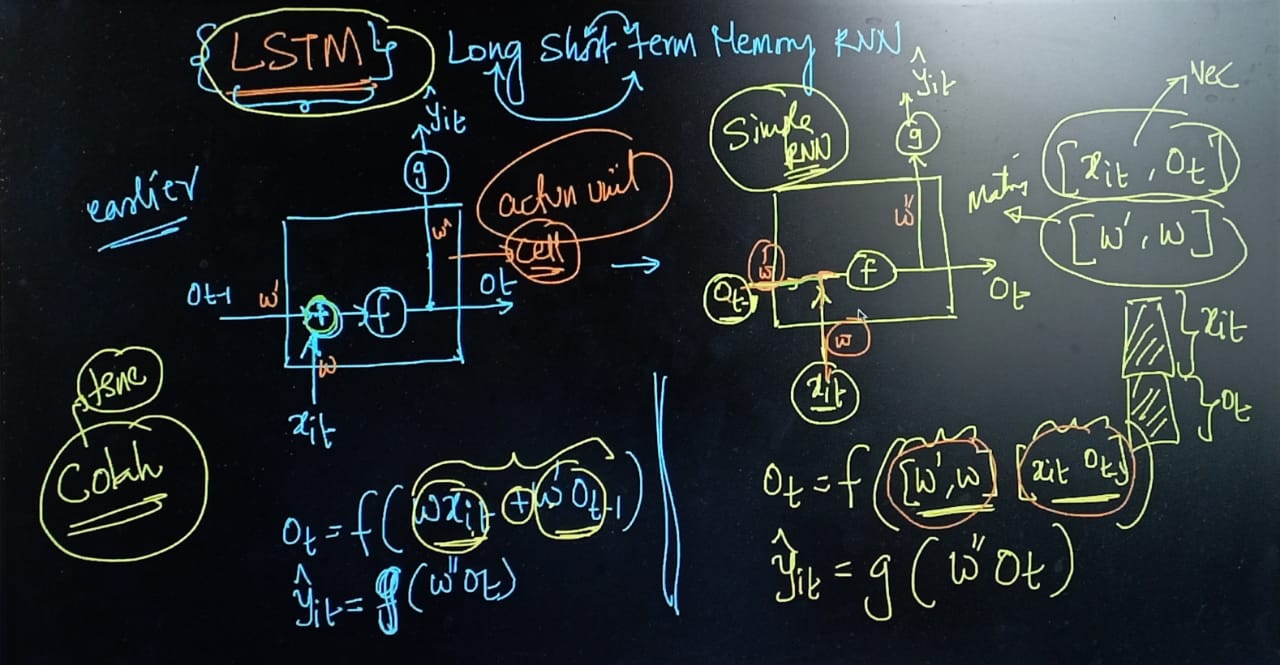 {LSTM} Long Short Term Memory RNN
earlier
ŷit
g
w"
actvn unit
cell
Ot-1
w'
+
f
Ot
w
xit
tsne
Colah
Ot = f(wxit + w'Ot-1)
ŷit = g(w"Ot)
Simple
RNN
ŷit
g
w"
w'
f
Ot-1
Ot
w
xit
Vec
[xit, Ot]
Matrix
[w', w]
xit
Ot
Ot = f([w', w] [xit Ot-1])
ŷit = g(w"Ot)